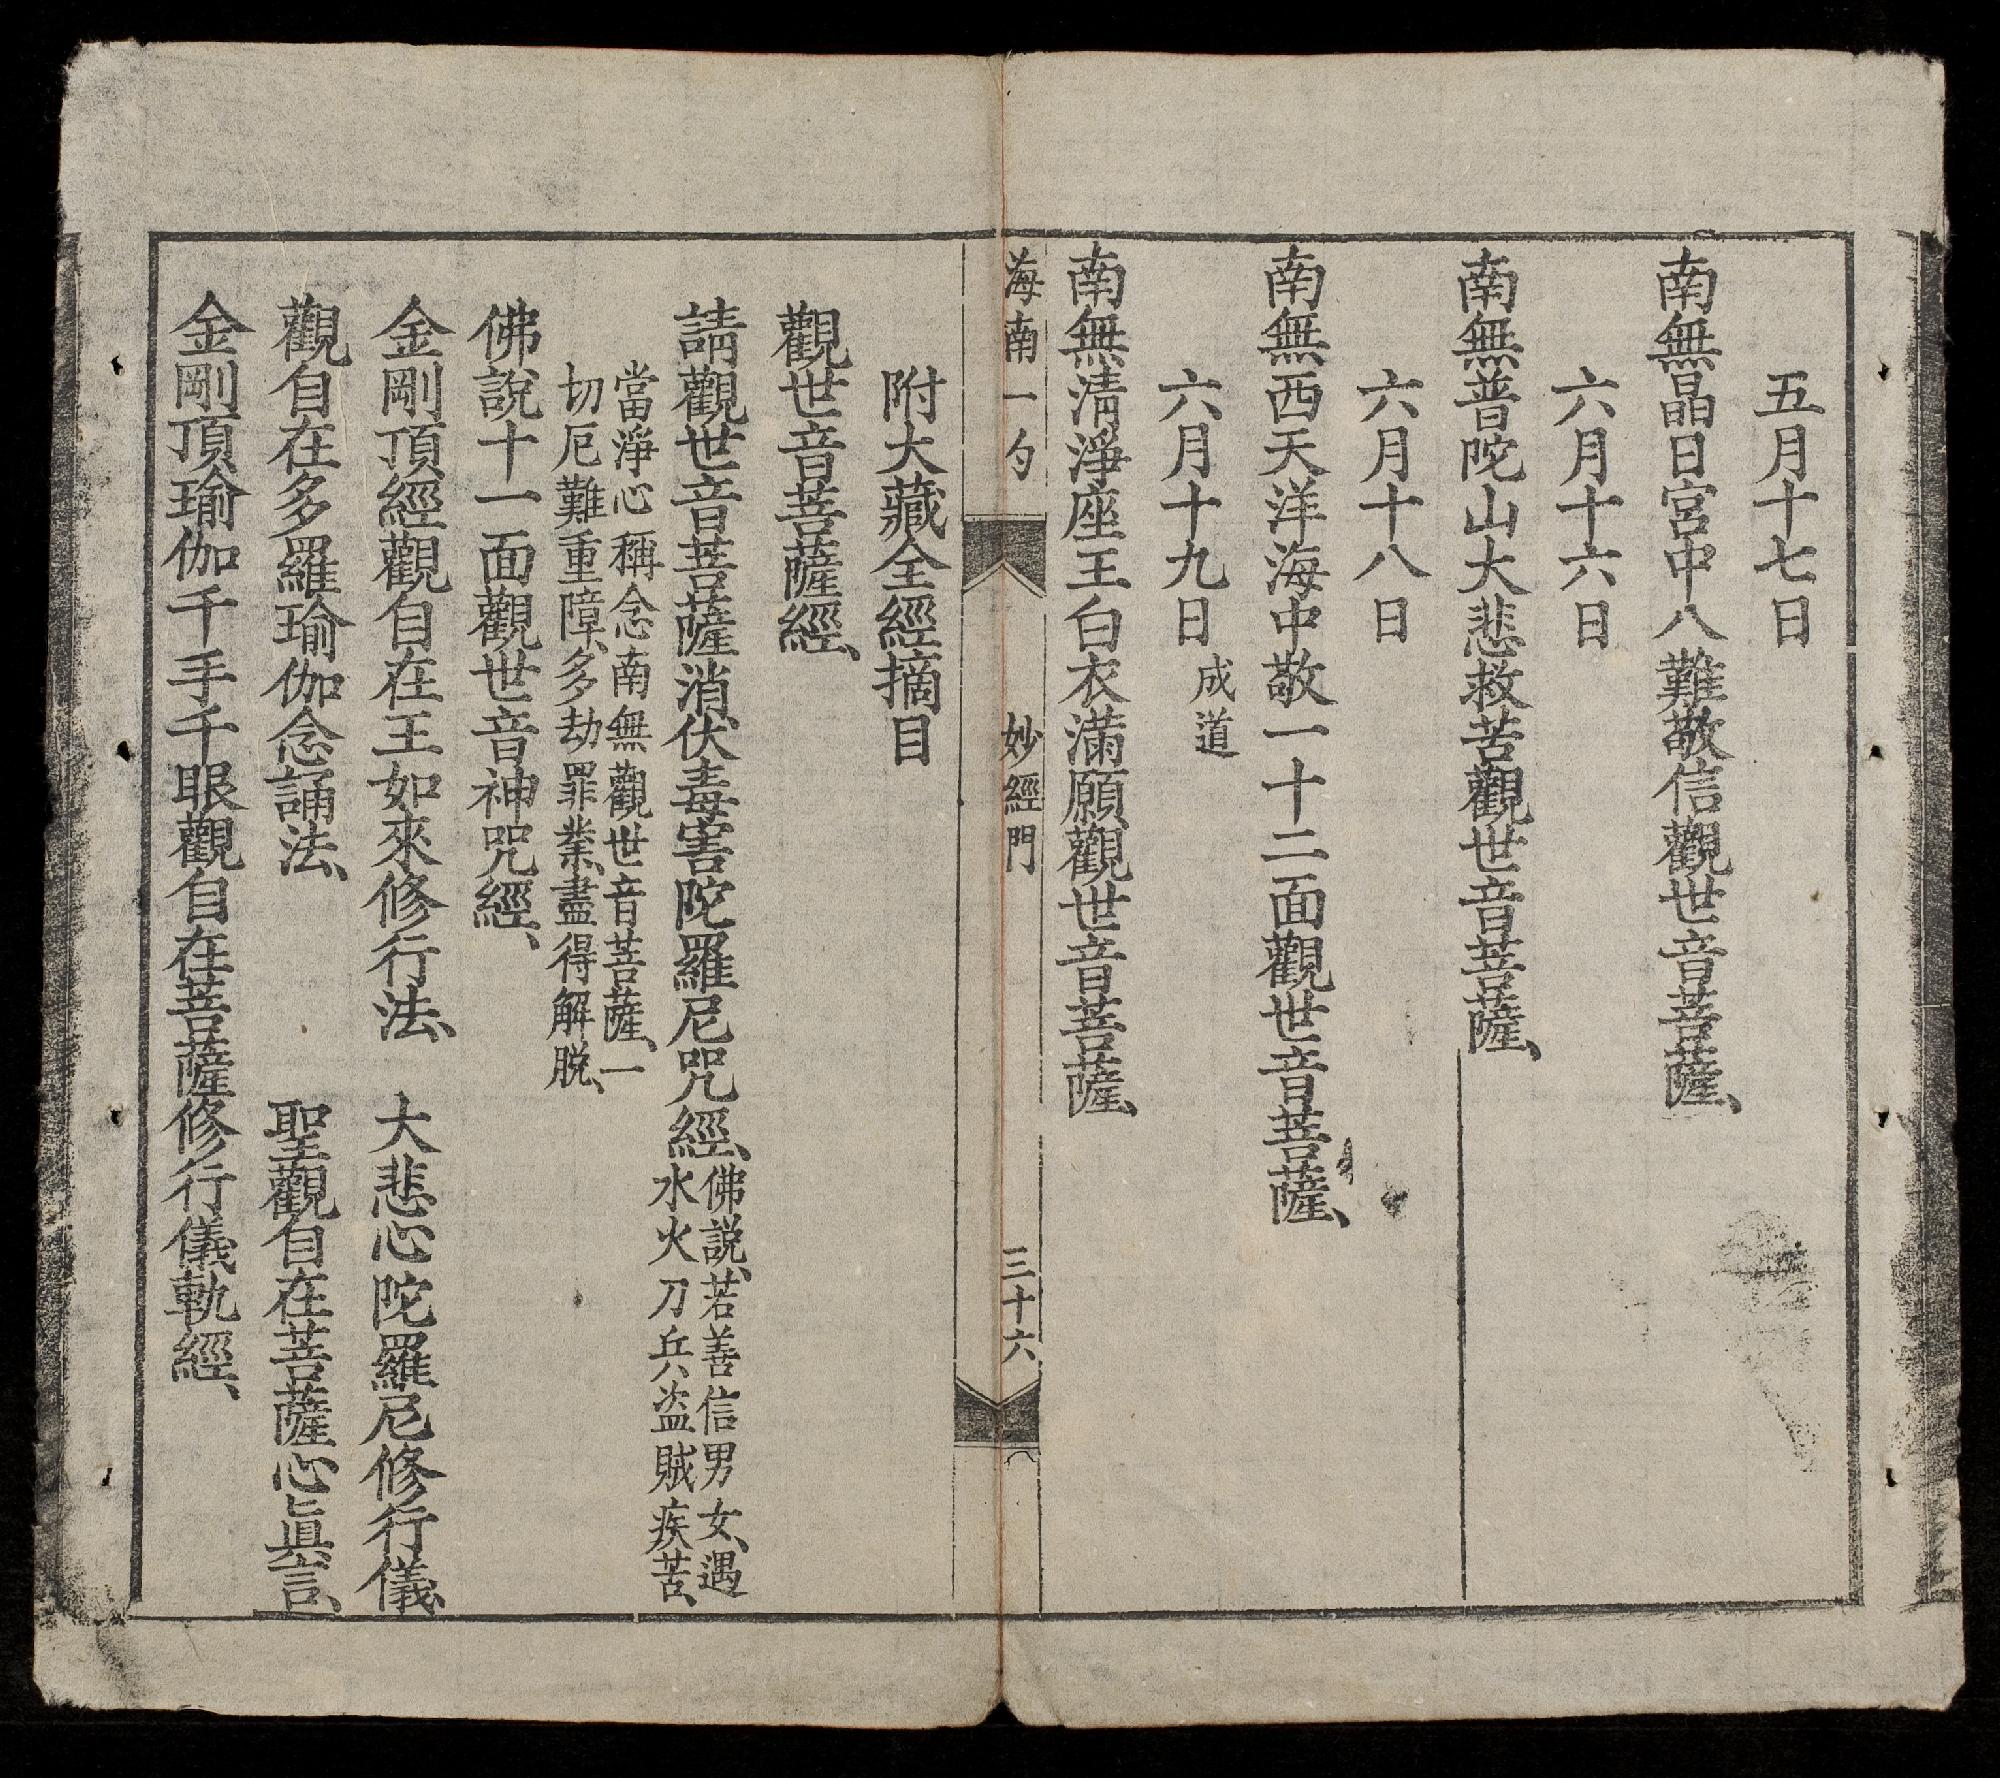 五月十七日
南無晶日宮中八難敬信觀世音菩薩、
六月十六日
南無普陀山大悲救苦觀世音菩薩、
六月十八日
南無西天洋海中敬一十二面觀世音菩薩、
六月十九日成道
南無淸淨座王白衣滿願觀世音菩薩、
海南一勺 妙經門 三十六
附大藏全經摘目
觀世音菩薩經、
請觀世音菩薩消伏毒害陀羅尼咒經、佛説、若善信男女、遇
水火刀兵盗賊疾苦、
當淨心稱念南無觀世音菩薩、一
切厄難重障、多劫罪業、盡得解脱、
佛說十一面觀世音神咒經、
金剛頂經觀自在王如來修行法、 大悲心陀羅尼修行儀
觀自在多羅瑜伽念誦法、 聖觀自在菩薩心眞言、
金剛頂瑜伽千手千眼觀自在菩薩修行儀軌經、